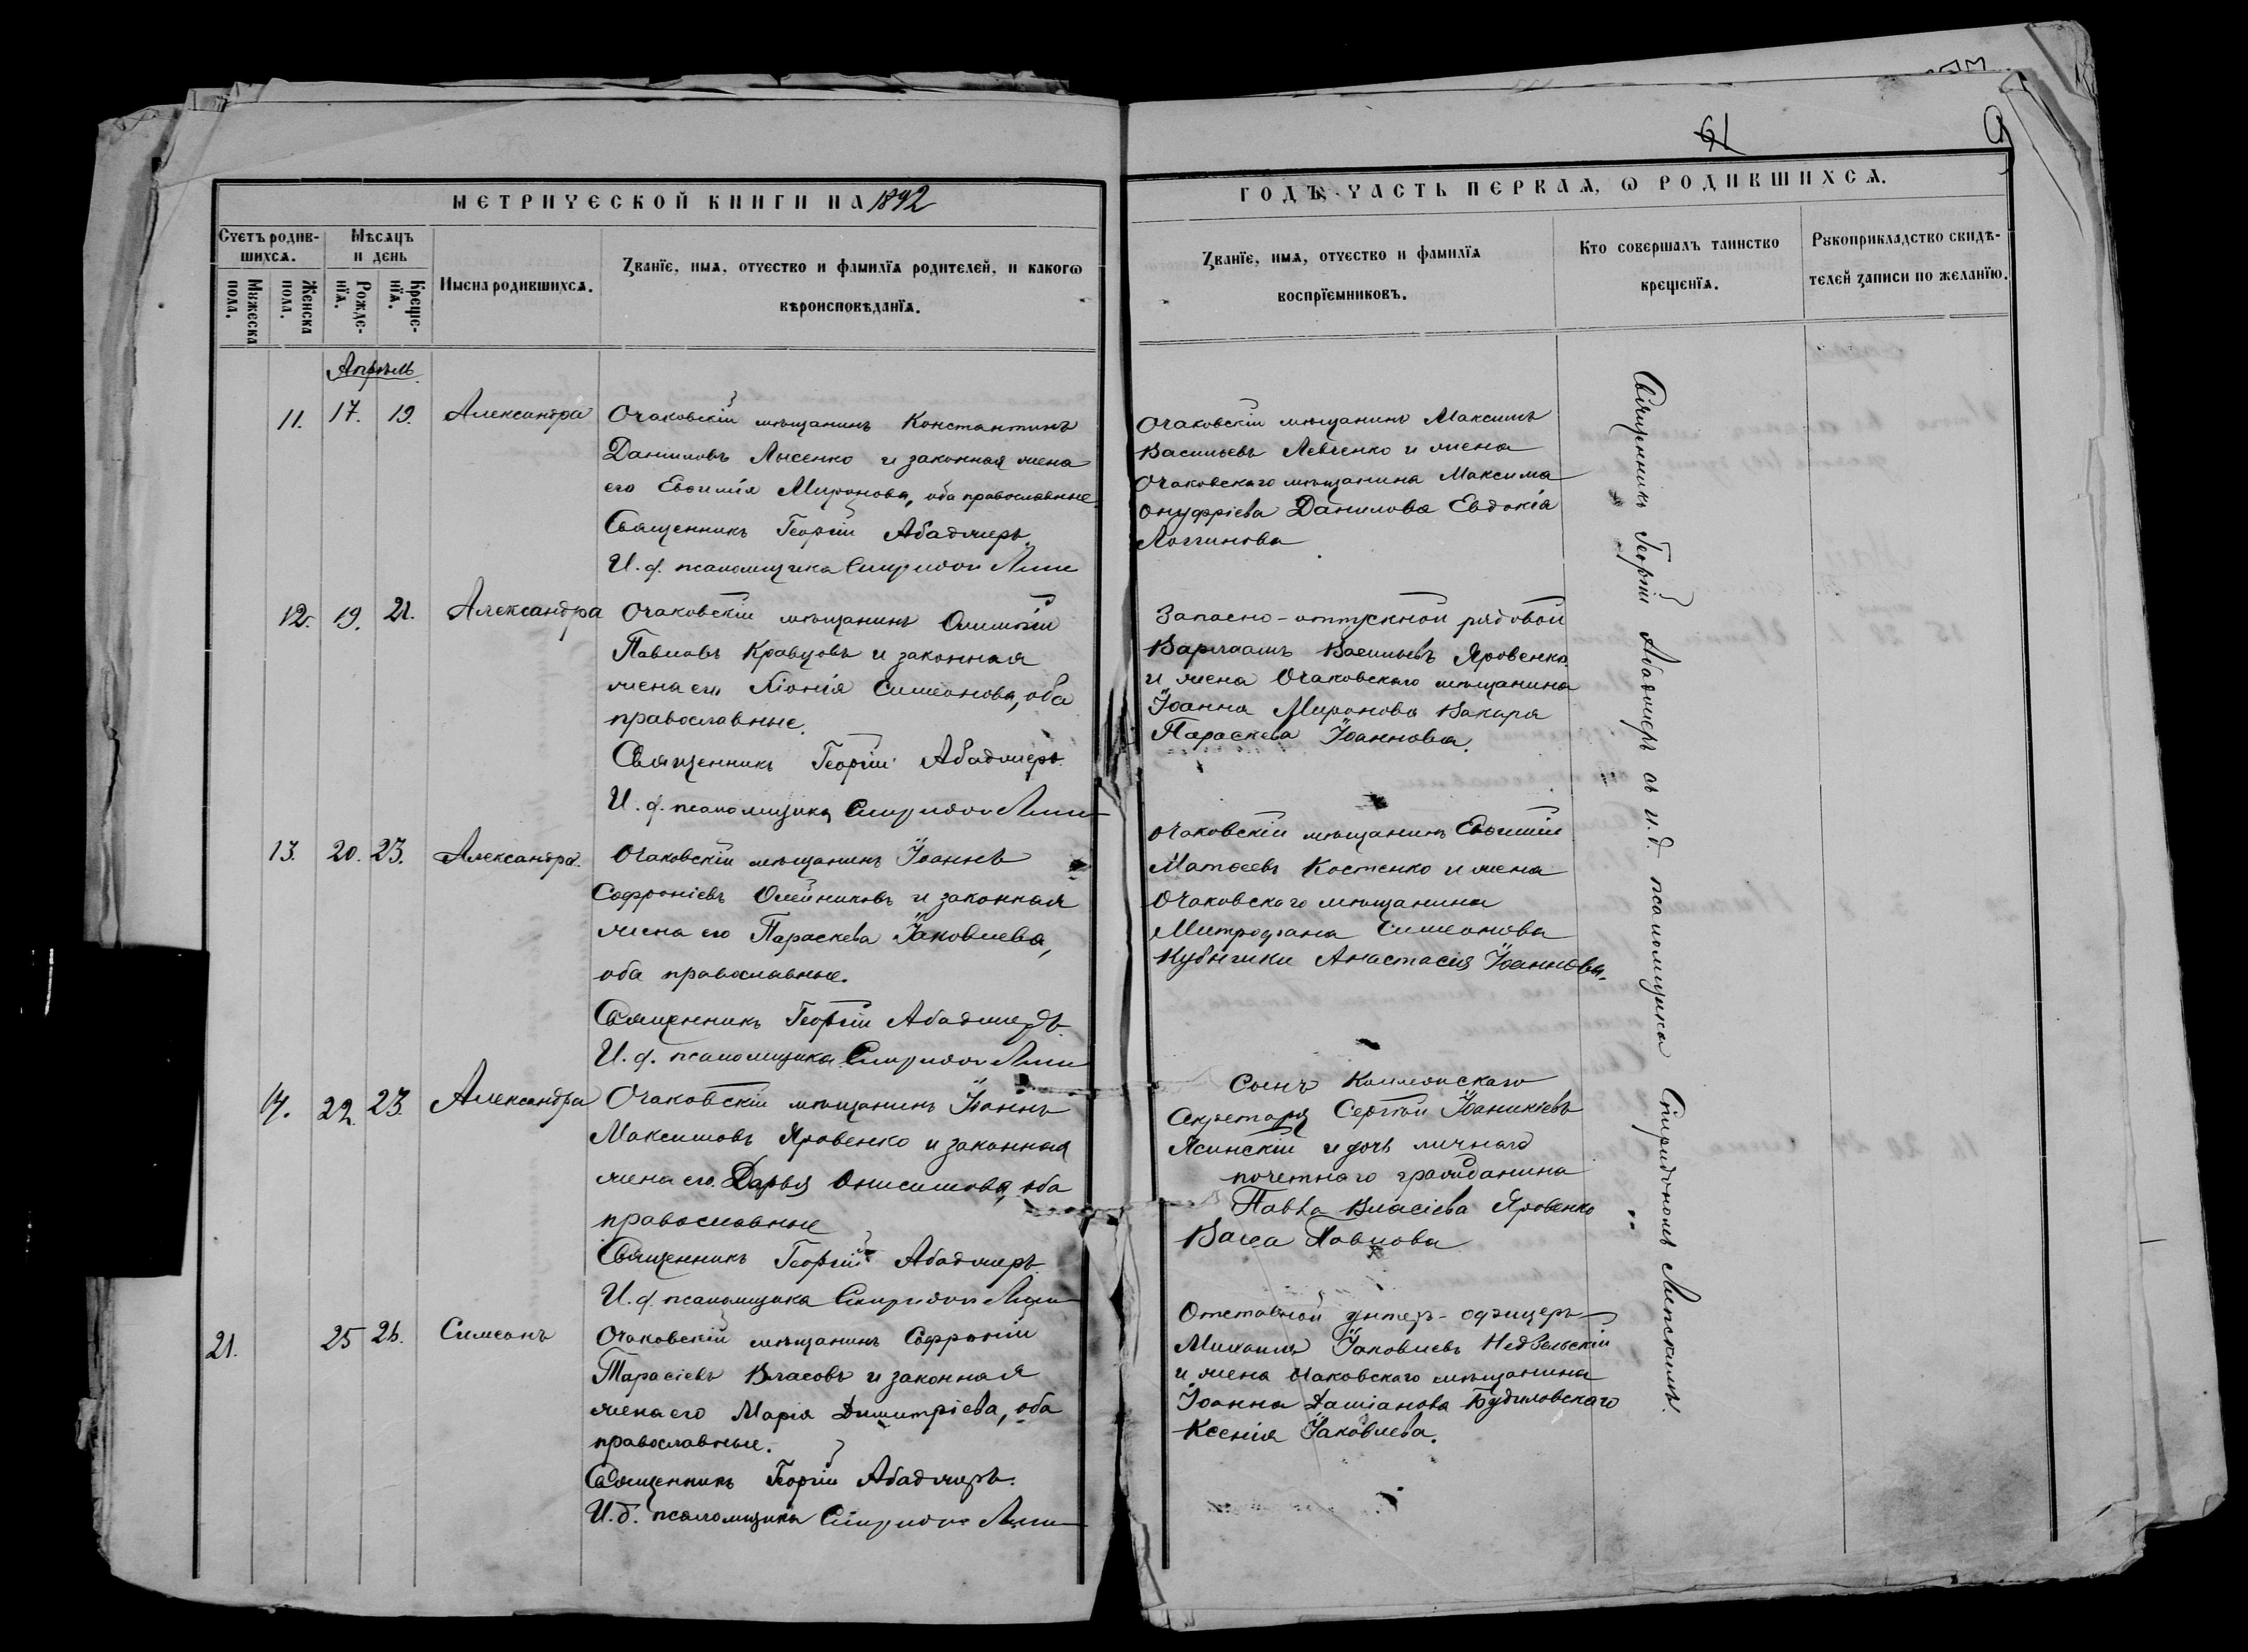 МЕТРИЧЕСКОЙ КНИГИ НА 1892
ГОДЪ, ЧАСТЬ ПЕРВАЯ, Ѡ РОДИВШИХСЯ.
Счетъ родив-
шихся.
Мужеска
пола.
Женска
пола.
Мѣсяцъ
и день
Рожде-
нїя.
Креще-
нїя.
Имена родившихся.
Званїе, имя, отчество и фамилїя родителей, и какогѡ
вѣроисповѣданїя.
Званїе, имя, отчество и фамилїя
воспрїемниковъ.
Кто совершалъ таинство
крещенїя.
Рукоприкладство свидѣ-
телей записи по желанїю.
Апрѣль
11. 17. 19. Александра
Очаковскій мѣщанинъ Константинъ
Даніиловъ Лысенко и законная жена
его Евѳимія Миронова, оба православные.
Священникъ Георгій Абаджеръ.
И. д. псаломщика Спиридон
Очаковскій мѣщанинъ Максимъ
Васильевъ Левченко и жена
Очаковскаго мѣщанина Максима
Онуфріева Данилова Евдокія
Логгинова
12. 19. 21. Александра
Очаковскій мѣщанинъ Олимпій
Павловъ Кравцовъ и законная
жена его Хіонія Симеонова, оба
православные.
Священникъ Георгій Абаджеръ.
И. д. псаломщика Спиридон
Запасно-отпускной рядовой
Варлаамъ Васильевъ Яровенко
и жена Очаковскаго мѣщанина
Іоанна Миронова Вакаря
Параскева Іоаннова.
13. 20. 23. Александра.
Очаковскій мѣщанинъ Іоаннъ
Софроніевъ Олейниковъ и законная
жена его Параскева Іаковлева,
оба православные.
Священникъ Георгій Абаджеръ.
И. д. псаломщика Спиридон
Очаковскій мѣщанинъ Евѳимій
Матѳеевъ Костенко и жена
Очаковскаго мѣщанина
Митрофана Симеонова
Анастасія Іоаннова.
14. 22. 23. Александра
Очаковскій мѣщанинъ Іоаннъ
Максимовъ Яровенко и законная
жена его Дарья Онисимова, оба
православные
Священникъ Георгій Абаджеръ.
И. д. псаломщика Спиридон
Сынъ Коллежскаго
Секретаря Сергѣй Іоаникіевъ
Ясинскій и дочь личнаго
почетнаго гражданина
Павла Власіева Яровенко
Васса Павлова
21. 25 26. Симеонъ
Очаковскій мѣщанинъ Софроній
Тарасіевъ Власовъ и законная
жена его Марія Димитріева, оба
православные.
Священникъ Георгій Абаджеръ.
И. д. псаломщика Спиридон
Отставной унтеръ-офицеръ
Михаилъ Іаковлевъ Недзельскій
и жена Очаковскаго мѣщанина
Іоанна Даміанова Будиловскаго
Ксенія Іаковлева.
Священникъ Георгій Абаджеръ съ и. д. псаломщика Спиридономъ Липскимъ.